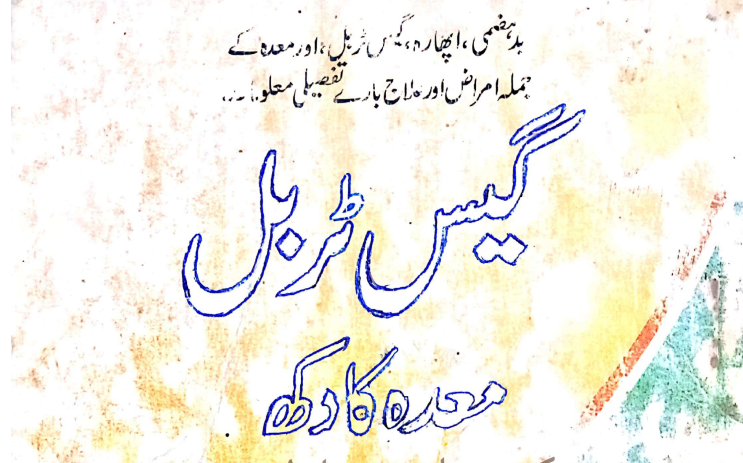 بدہضمی، اپھارہ، گیس ٹربل، اور معدہ کے
جملہ امراض اور علاج بارے تفصیلی معلومات
گیس ٹربل
معدہ کا دکھ